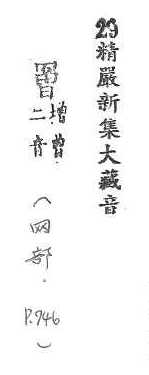 29精嚴新集大藏音
增曹
二音
(网部.P.946)